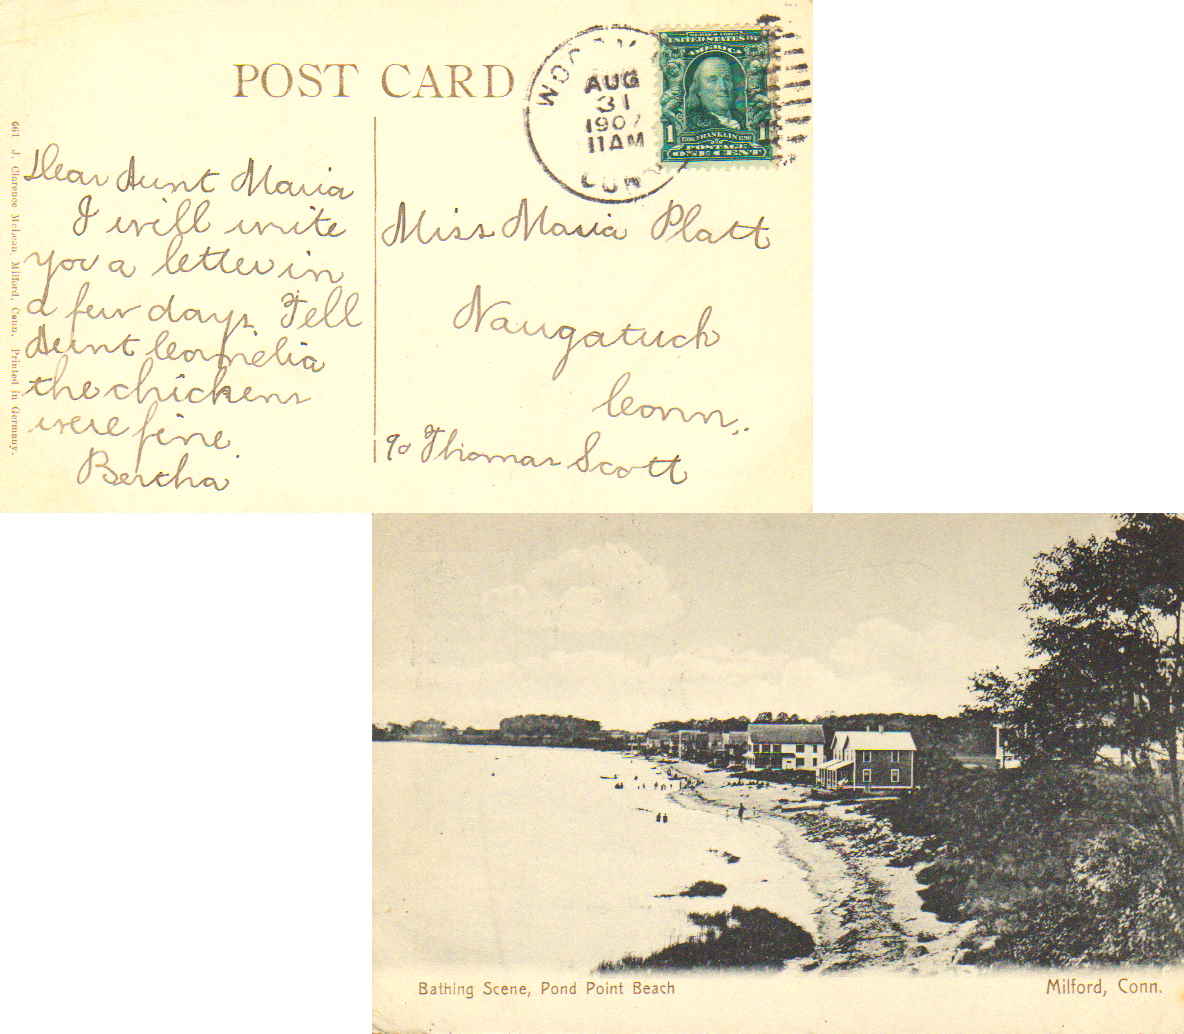 POST CARD
WOODM
AUG
31
1907
11AM
CONN
SERIES 1902
UNITED STATES OF
AMERICA
1 FRANKLIN 1
POSTAGE
ONE CENT
661 J. Clarence McLean, Milford, Conn. Printed in Germany.
Dear Aunt Maria
I will write
you a letter in
a few days. Tell
Aunt Cornelia
the chickens
were fine.
Bertha
Miss Maria Platt
Naugatuck
Conn.
℅ Thomas Scott
Bathing Scene, Pond Point Beach
Milford, Conn.